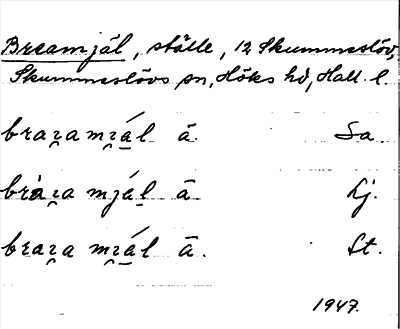 Breamjäl, ställe, 12 Skummeslöv,
Skummeslövs sn, Höks hd, Hall. l.
braramrál ā. Sa.
brára mjál ā Lj.
brara mrál ā. St.
1947.